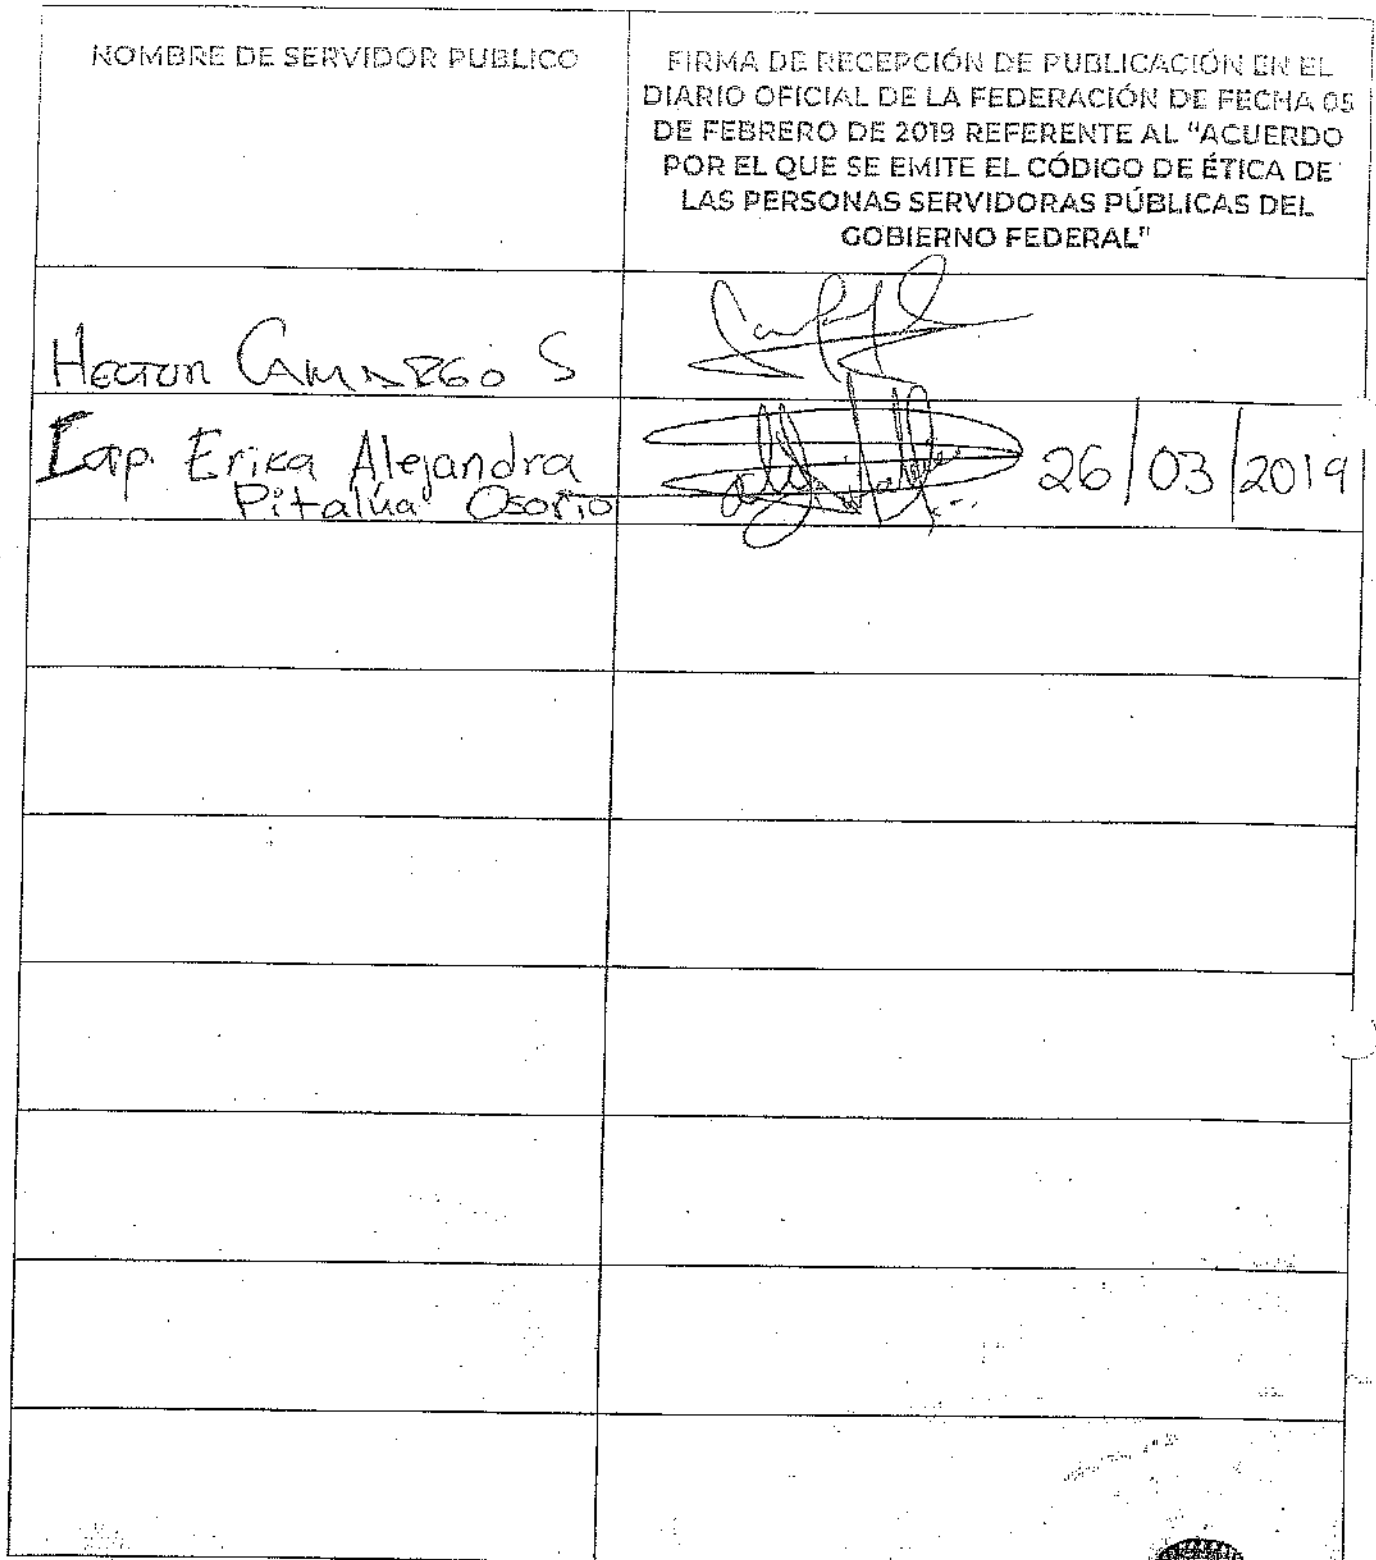 NOMBRE DE SERVIDOR PUBLICO
FIRMA DE RECEPCIÓN DE PUBLICACIÓN EN EL
DIARIO OFICIAL DE LA FEDERACIÓN DE FECHA 05
DE FEBRERO DE 2019 REFERENTE AL "ACUERDO
POR EL QUE SE EMITE EL CÓDIGO DE ÉTICA DE
LAS PERSONAS SERVIDORAS PÚBLICAS DEL
GOBIERNO FEDERAL"
HECTOR CAMARGO S
Erika Alejandra
Pitalúa Osorio
26/03/2019